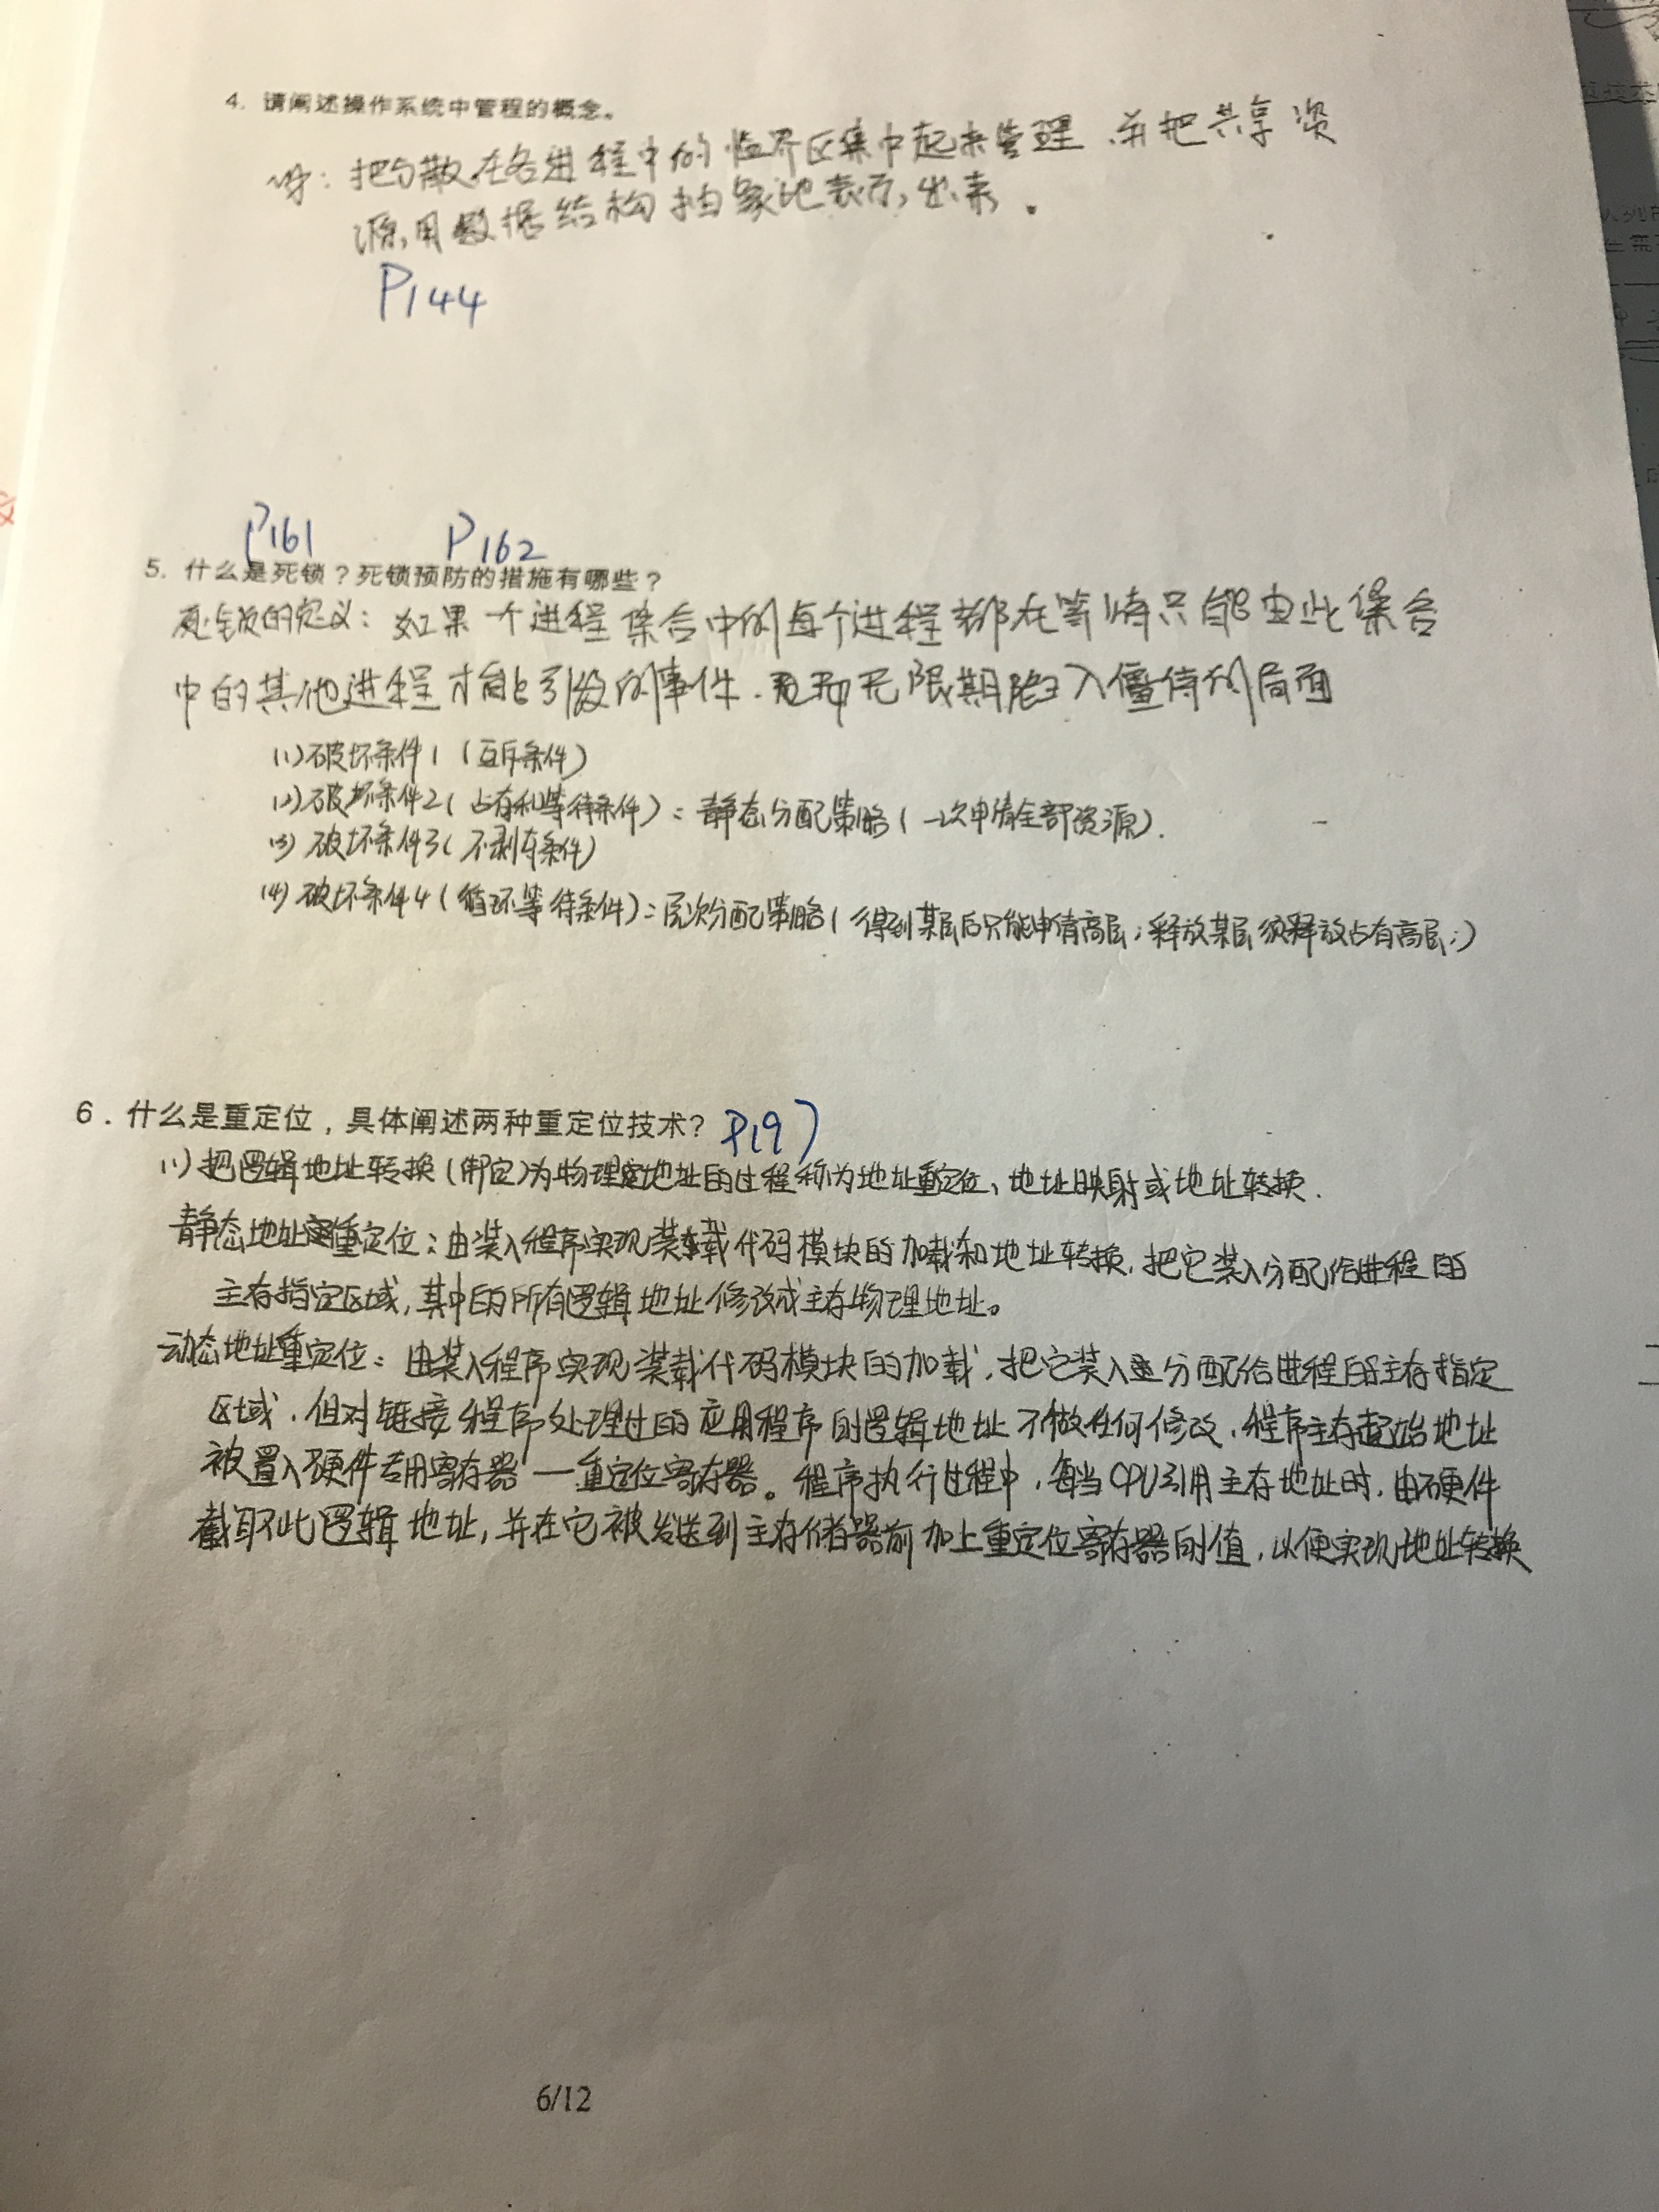 4. 请阐述操作系统中管程的概念。
答: 把分散在各进程中的临界区集中起来管理,并把共享资
源,用数据结构抽象地表示出来。
P144
P161 P162
5. 什么是死锁?死锁预防的措施有哪些?
死锁的定义: 如果一个进程集合中的每个进程都在等待只能由此集合
中的其他进程才能引发的事件.而无限期陷入僵持的局面
(1)破坏条件1 (互斥条件)
(2)破坏条件2( 占有和等待条件): 静态分配策略(一次申请全部资源).
(3) 破坏条件3( 不剥夺条件)
(4) 破坏条件4(循环等待条件): 层次分配策略( 得到某层后只能申请高层;释放某层须释放占有高层;)
6.什么是重定位,具体阐述两种重定位技术? P197
(1)把逻辑地址转换(绑定)为物理地址的过程称为地址重定位、地址映射或地址转换.
静态地址重定位:由装入程序实现装载代码模块的加载和地址转换,把它装入分配给进程的
主存指定区域,其中的所有逻辑地址修改成主存物理地址。
动态地址重定位: 由装入程序实现装载代码模块的加载,把它装入分配给进程的主存指定
区域,但对链接程序处理过的应用程序的逻辑地址不做任何修改,程序主存起始地址
被置入硬件专用寄存器—重定位寄存器。程序执行过程中,每当CPU引用主存地址时,由硬件
截取此逻辑地址,并在它被发送到主存储器前加上重定位寄存器的值,以便实现地址转换
6/12